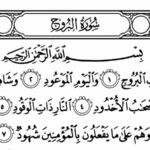 سُورَةُ الْبُرُوجِ
بِسْمِ اللَّهِ الرَّحْمَٰنِ الرَّحِيمِ
الْبُرُوجِ ١ وَالْيَوْمِ الْمَوْعُودِ ٢
الْأُخْدُودِ ٤ النَّارِ ذَاتِ الْوَقُودِ ٥
وَهُمْ عَلَىٰ مَا يَفْعَلُونَ بِالْمُؤْمِنِينَ شُهُودٌ ٧